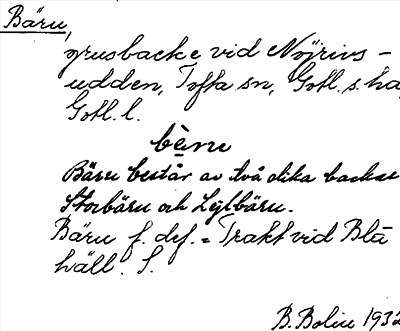 Bäru,
grusbacke vid Nöjrivs-
udden, Tofta sn, Gotl. s. ha
Gotl. l.
bèru
Bäru består av två olika backar
Storbäru och Lejlbäru.
Bäru f. def. = Trakt vid Blå
häll. S.
B. Bolin 1932